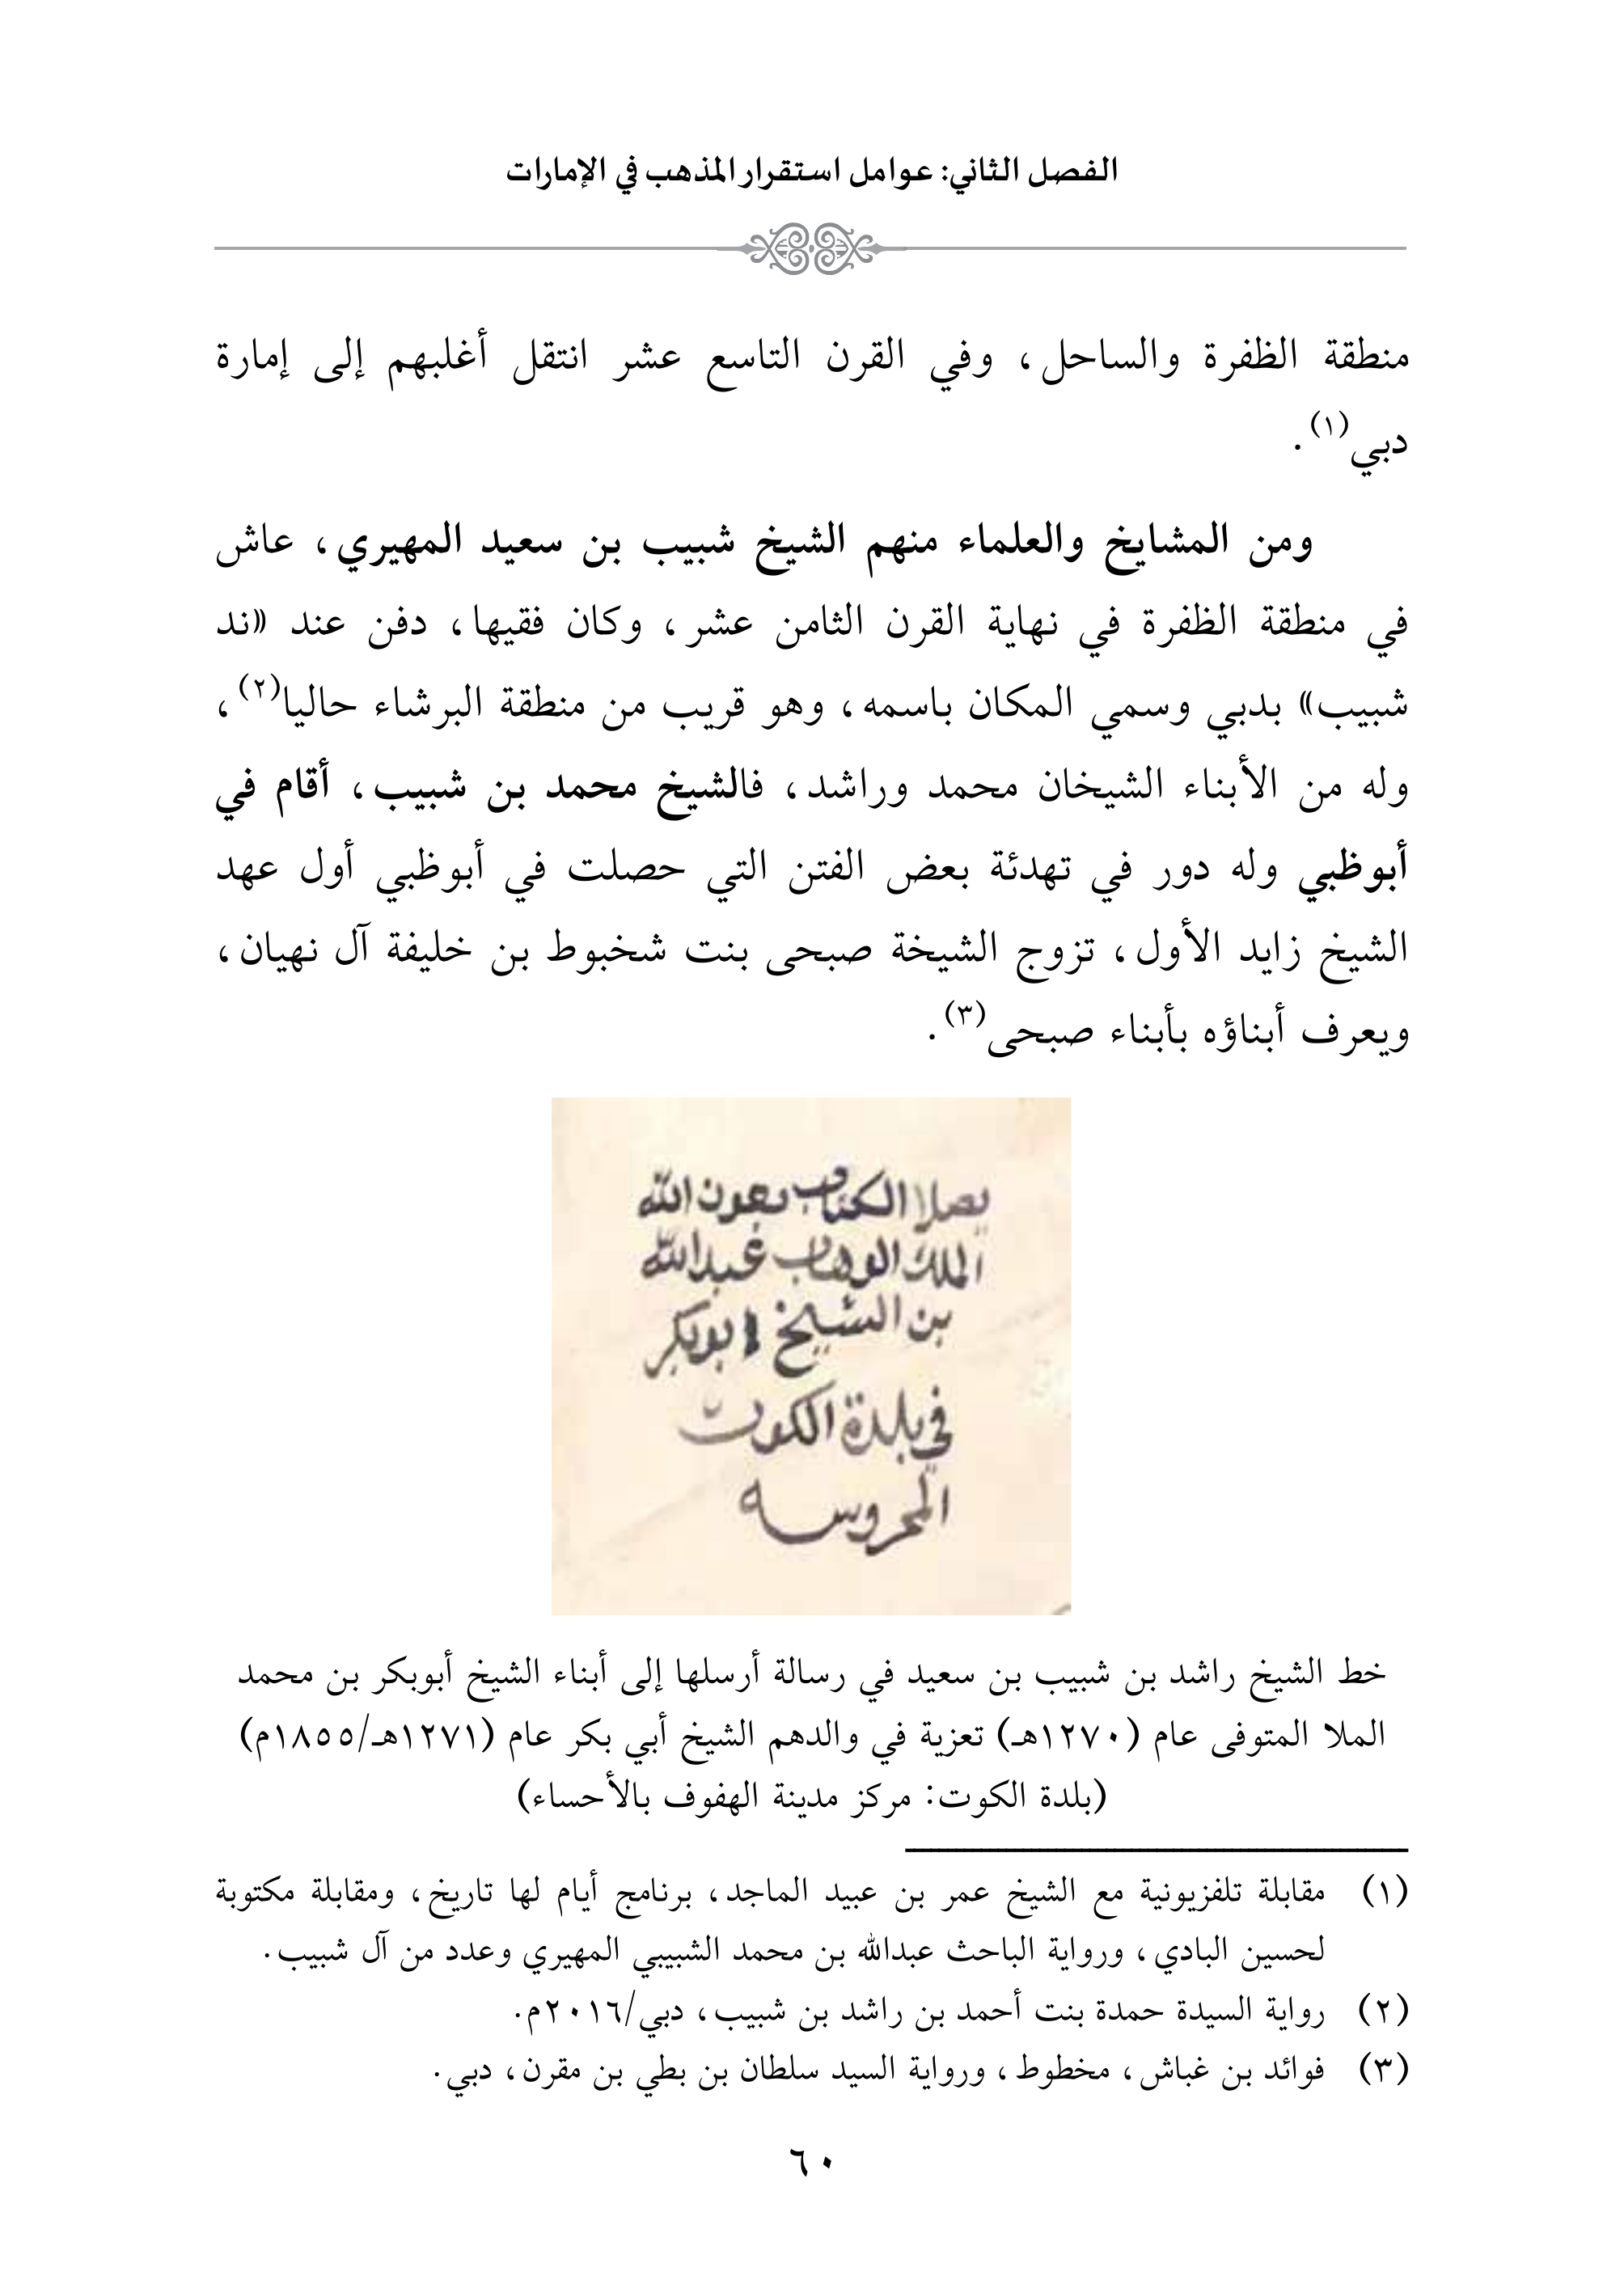 الفصل الثاني: عوامل استقرار المذهب في الإمارات
منطقة الظفرة والساحل، وفي القرن التاسع عشر انتقل أغلبهم إلى إمارة
دبي(١).
ومن المشايخ والعلماء منهم الشيخ شبيب بن سعيد المهيري، عاش
في منطقة الظفرة في نهاية القرن الثامن عشر، وكان فقيها، دفن عند «ند
شبيب» بدبي وسمي المكان باسمه، وهو قريب من منطقة البرشاء حاليا(٢)،
وله من الأبناء الشيخان محمد وراشد، فالشيخ محمد بن شبيب، أقام في
أبوظبي وله دور في تهدئة بعض الفتن التي حصلت في أبوظبي أول عهد
الشيخ زايد الأول، تزوج الشيخة صبحى بنت شخبوط بن خليفة آل نهيان،
ويعرف أبناؤه بأبناء صبحى(٣).
يصل الكتاب بعون الله
الملك الوهاب عبدالله
بن الشيخ ابوبكر
في بلدة الكوت
المحروسه
خط الشيخ راشد بن شبيب بن سعيد في رسالة أرسلها إلى أبناء الشيخ أبوبكر بن محمد
الملا المتوفى عام (١٢٧٠هـ) تعزية في والدهم الشيخ أبي بكر عام (١٢٧١هـ/١٨٥٥م)
(بلدة الكوت: مركز مدينة الهفوف بالأحساء)
(١) مقابلة تلفزيونية مع الشيخ عمر بن عبيد الماجد، برنامج أيام لها تاريخ، ومقابلة مكتوبة
لحسين البادي، ورواية الباحث عبدالله بن محمد الشبيبي المهيري وعدد من آل شبيب.
(٢) رواية السيدة حمدة بنت أحمد بن راشد بن شبيب، دبي/٢٠١٦م.
(٣) فوائد بن غباش، مخطوط، ورواية السيد سلطان بن بطي بن مقرن، دبي.
٦٠